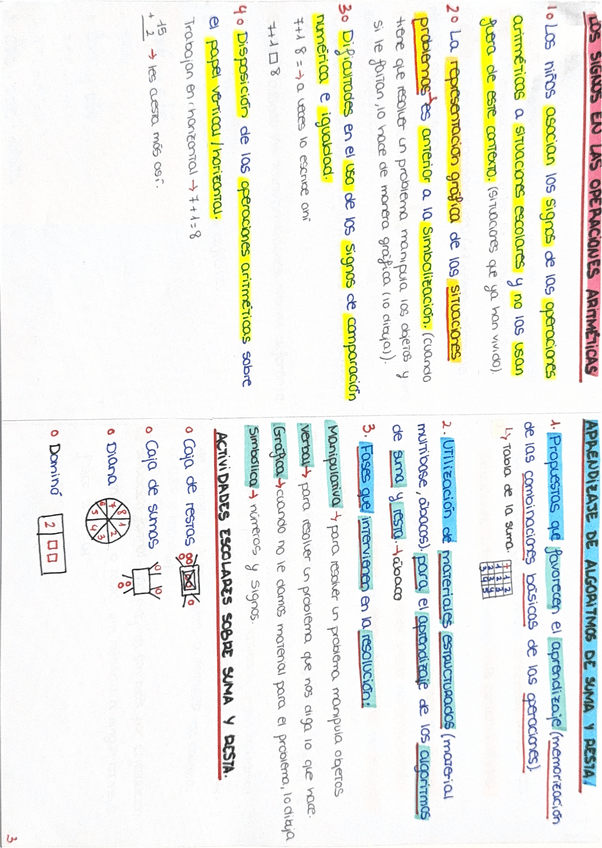 LOS SIGNOS EN LAS OPERACIONES ARITMÉTICAS
1º Los niños asocian los signos de las operaciones
aritméticas a situaciones escolares y no los usan
fuera de este contexto. (situaciones que ya han vivido).
2º La representación gráfica de las situaciones
problemas es anterior a la simbolización. (cuando
tiene que resolver un problema manipula los objetos y
si le faltan, lo hace de manera gráfica (lo dibuja)).
3º Dificultades en el uso de los signos de comparación
numérica e igualdad.
7+1 8 = → a veces lo escribe así
7+1 □ 8
4º Disposición de las operaciones aritméticas sobre
el papel vertical/horizontal.
Trabajan en horizontal → 7+1=8
15
+ 2 → les cuesta más así.
APRENDIZAJE DE ALGORITMOS DE SUMA Y RESTA.
1. Propuestas que favorecen el aprendizaje (memorización
de las combinaciones básicas de las operaciones).
↳ Tabla de la suma.
2. Utilización de materiales estructurados (material
multibase, ábacos), para el aprendizaje de los algoritmos
de suma y resta. → ábaco
3. Fases que intervienen en la resolución.
Manipulativa → para resolver un problema manipula objetos
Verbal → para resolver un problema que nos diga lo que hace.
Gráfica → cuando no le damos material para el problema, lo dibuja
Simbólica → números y signos.
ACTIVIDADES ESCOLARES SOBRE SUMA Y RESTA.
o Caja de restas
o Caja de sumas
o Diana
8 1 2 3 4 5 6 7
o Dominó
2
3